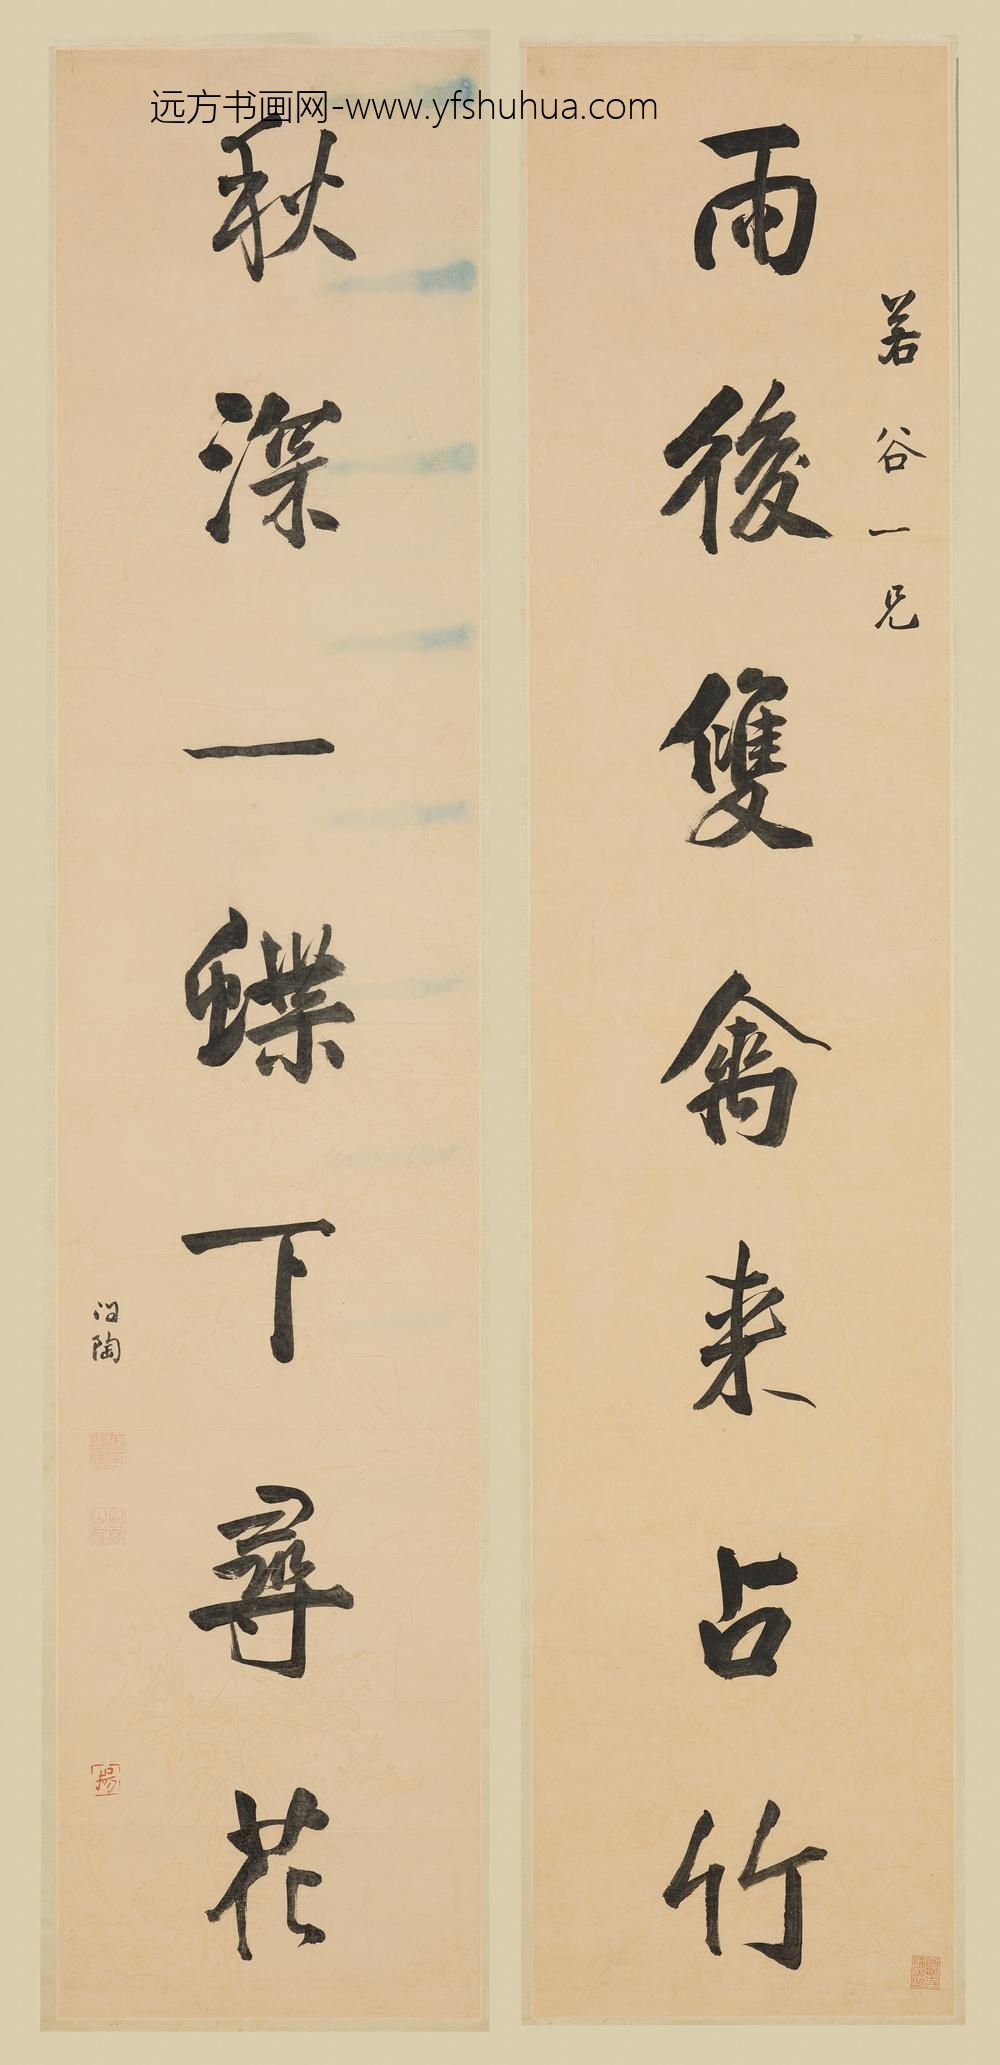 远方书画网-www.yfshuhua.com
若谷一兄
雨後雙禽来占竹
秋深一蝶下尋花
问陶